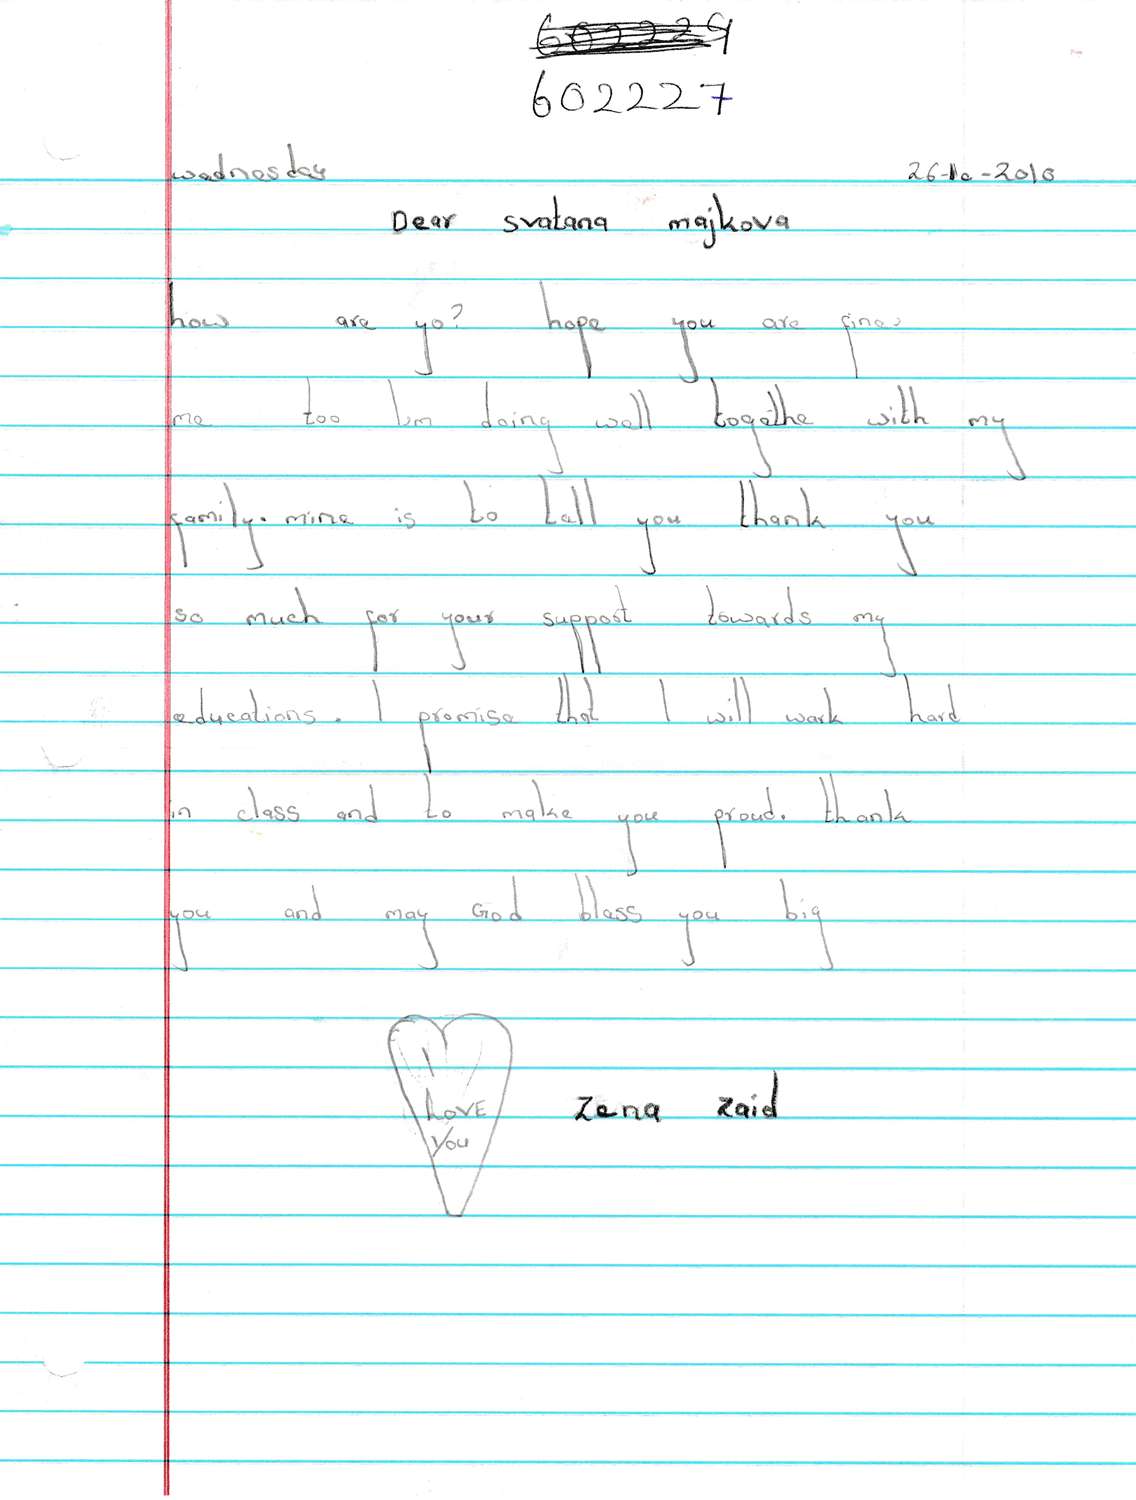 602229
602227
wednesday 26-10-2016
Dear svatana majkova
how are yo? hope you are fine?
me too I'm doing well togethe with my
family. mine is to tell you thank you
so much for your support towards my
educations. I promise that I will work hard
in class and to make you proud. thank
you and may God bless you big
I
LOVE
you
Zena zaid